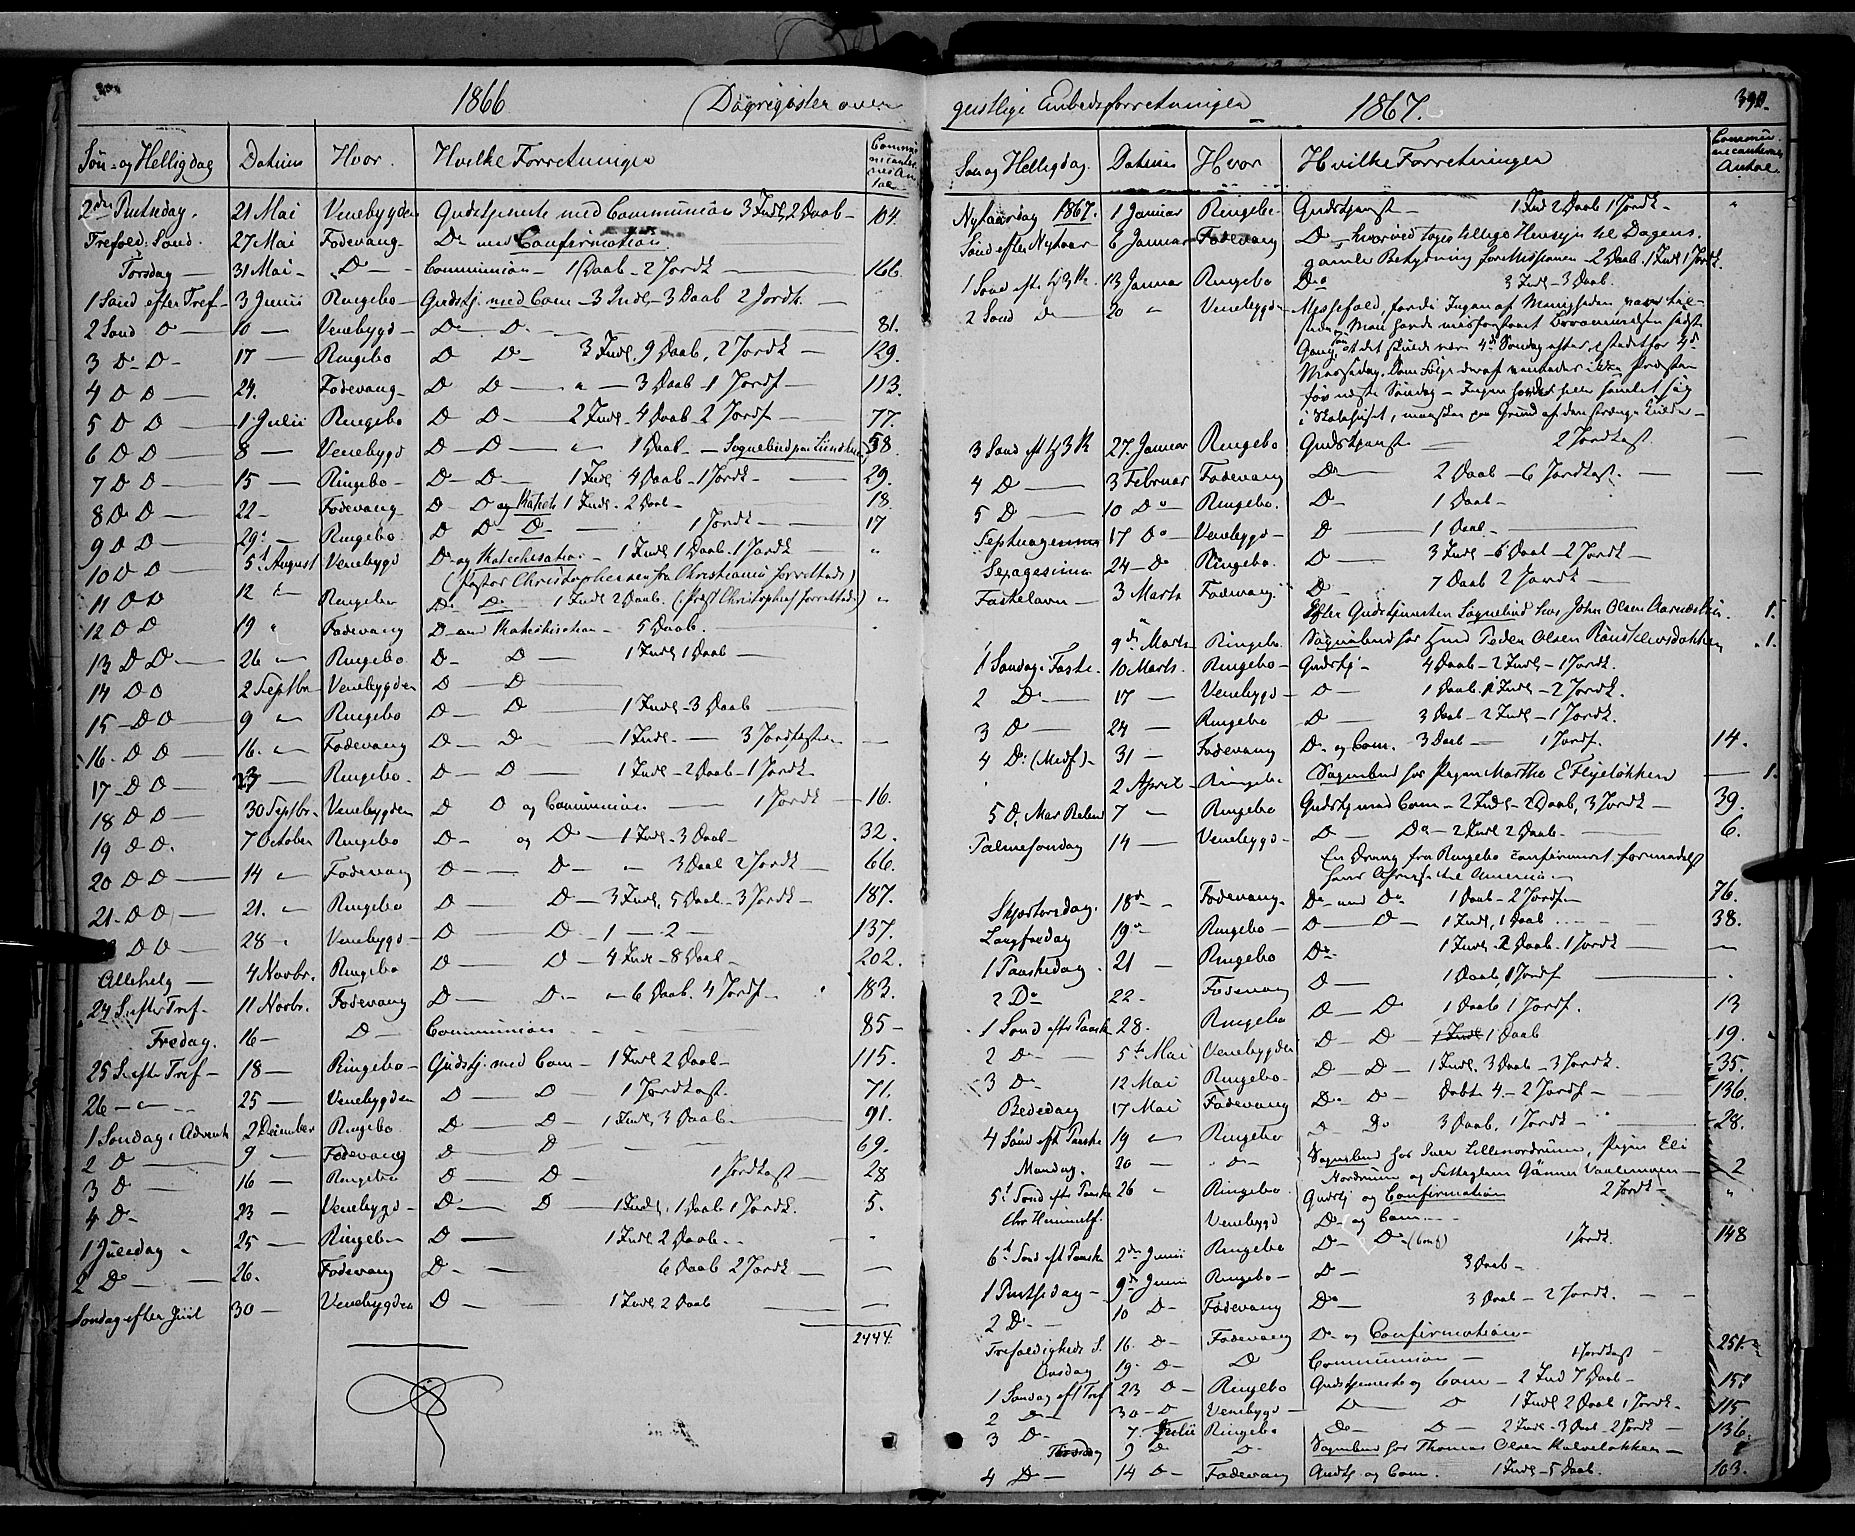 1866 Dagregister over
Søn- og Helligdag Datum Hvor. Hvilke Forretninger Communicanternes Antal
2den Pintsedag. 21 Mai Venebygden Gudstjeneste med Communion 3 Indl. 2 Daab- 104.
Trefold: Sønd. 27 Mai Fodevang- Do med Confirmation.
Torsdag 31 Mai- Do- Communion- 1 Daab- 2 Jordk 166.
1 Sønd efter Tref- 3 Junii Ringebo- Gudstj. med Com- 3 Indl- 3 Daab 2 Jordk.
2 Sønd D- 10 — Venebygd- D- D- 81.
3 D- D- 17 — Ringebo D D- 3 Indl. 9 Daab, 2 Jordk 129.
4 D D- 24. Fodevang- D D- " 3 Daab- 1 Jordf- 113.
5 D D- 1 Julii Ringebo D D- 2 Indl. 4 Daab- 2 Jordf- 77.
6 D D- 8 — Venebygd D- D- " 1 Daab- Sognebud paa 58.
7 D D- 15 — Ringebo- D- D- 1 Indl. 4 Daab- 1 Jordk- 29.
8 D D- 22 — Fodevang- D- D og Katech 1 Indl. 2 Daab- 18
9 D D- 29 Ringebo. D D D- 1 Jordk- 17
10 D D- 5t August Venebygd D- og Katechisation- 1 Indl 1 Daab. 1 Jordk- "
(Pastor Christophersen fra Christiania forrettede)
11 D D 12 " Ringebo D- D- 1 Indl 2 Daab. (Præst Christophersen forrettede) "
12 D D 19 " Fodevang D- med Katechisation- 5 Daab.
13 D D- 26 " Ringebo. D- D- 1 Indl 1 Daab-
14 D D 2 Septbr- Venebygden D- D-
15- D D- 9 " Ringebo D- D- 1 Indl- 3 Daab-
16- D D- 16. " Fodevang D- D- 1 Indl- 3 Jordfæster- —
17- D D- 23 — Ringebo- D- D- 1 Indl- 2 Daab- 1 Jordk-
18 D D- 30 Septbr- Venebygden D D og Communion- 1 Jordk 16.
19 D D. 7 October Ringebo D- og D- 1 Indl- 3 Daab- 32.
20 D D- 14 " Fodevang D- D- " 3 Daab 2 Jordk- 66.
21- D D- 21. " Ringebo D- D- 3 Indl. 5 Daab- 3 Jordk- 187.
D D- 28 " Venebygd- D- D- 1 — 2 — 137.
Allehelg- 4 Novbr. Ringebo D- D- 4 Indl- 8 Daab- 202.
24 S. efter Tref- 11 Novbr. Fodevang D- D- " 6 Daab. 4 Jordf- 183.
Fredag. 16- D- Communion- 85-
25 S. efter Tref- 18 — Ringebo- Gudstj. med Com- 1 Indl 2 Daab- 115.
26- "- 25 — Venebygden D- D- 1 Jordkast. 71.
1 Søndag i Advent 2 December Ringebo. D- D- 1 Indl. 3 Daab- 91.
2 D- 9 — Fodevang D- D- 69.
3 D- 16 — Ringebo D- D- 1 Jordkast- 28
4 D- 23 — Venebygd- D- D- 1 Indl. 1 Daab 1 Jordk. 5.
1 Juledag 25 — Ringebo D- 1 Indl 2 Daab-
2 D- 26. Fodevang D- 6 Daab 2 Jordk- —
Søndag efter Juul 30 — Venebygden D- 1 Indl 2 Daab —
2444.
geistlige Embedsforretninger 1867. 390.
Søn og Helligdag. Datum Hvor Hvilke Forretninger Communicanternes Antal
Nytaarsdag 1867. 1 Januar Ringebo- Gudstjenst- 1 Ind 2 Daab 1 Jordk- "
Sønd efter Nytaar 6 Januar Fodevang D- hvorved toges tillige Hensyn til Dagens
gamle Betydning for Missionen- 2 Daab. 1 Indl 1 Jordk.
1 Sønd eft. H3K. 13 Januar Ringebo Do 3 Indl- 3 Daab.
2 Sønd D- 20 " Venebygd- Messefald, fordi Ingen af Menigheden var tilstede. Man havde misforstaaet sidste
Gang, at det skulde være 4de Søndag efter, istedetfor 3die
Messedag. Som Følge deraf Præsten
før næste Søndag- Ingen havde heller samlet sig
i Skolehuset, maaskee paa Grund af den strænge Kulde-
3 Sønd eft H3K 27. Januar Ringebo Gudstjenst- 2 Jordkast. —
4 D- 3 Februar Fodevang D- 2 Daab- 6 Jordkast- —
5 D- 10 Do Ringebo. D- 1 Daab-
Septuagesima 17 Do Venebygd- D- 1 Daab-
Sexagesima 24- D- Ringebo. D- 3 Indl- 6 Daab- 2 Jordk-
Fastelavn- 3 Marts Fodevang D- 7 Daab 2 Jordk-
Efter Gudstjenesten Sognebud hos John Olsen 1.
9de Marts- Ringebo. Sognebud hos Peder Olsen 1.
1 Søndag i Faste. 10 Marts. Ringebo- Gudstj- 4 Daab- 2 Indl- 1 Jordk.
2 D- 17 — Venebygd- D- 1 Daab. 1 Indl- 2 Jordk.
3 D- 24 — Ringebo D- 3 Daab- 2 Indl- 1 Jordk.
4 D. (Midf.)- 31 — Fodevang D- og Com. 3 Daab- 1 Jordf. 14.
2 April- Ringebo Sognebud hos Pigen Marthe E — 1.
5 D. Mar Bebud 7 " Ringebo Gudstj med Com- 2 Indl- 2 Daab, 3 Jordk- 39.
Palmesøndag 14 — Venebygd- D- Do- 2 Indl 2 Daab- 6.
En Dreng fra Ringebo confirmeret formedelst
hans Afreise til Amerika-
Skjærtorsdag. 18de- Fodevang- D- med Do 1 Daab- 2 Jordf- 76.
Langfredag 19 Ringebo- D- D- 1 Indl, 1 Daab 38.
1 Paaskedag. 21 — Ringebo Do- 1 Indl- 2 Daab- 1 Jordk —
2 Do 22 — Fodevang D- 1 Daab, 1 Jordf-
1 Sønd efter Paaske 28. Ringebo D- D 1 Daab 1 Jordf. 13
2 D- 5te Mai Venebygden D- D- 1 Indl 1 Daab 19.
3 D- 12 Mai Ringebo- D- D- 1 Indl. 3 Daab- 3 Jordk. 35.
Bededag 17 Mai Fodevang D- D- Døbt 4- 2 Jordf- 136.
4 Sønd eft Paaske 19 " Ringebo D Do 3 Daab, 1 Jordk- 28.
Mandag. 20 — D- Sognebud hos Iver Lillenordrum, Pigen Eli
Nordrum og 2
5t Sønd efter Paaske 26 " Ringebo. Gudstj og Confirmation 2 Jordk- "
Chr Himmelf. Venebygd D- og Com- 148
6t Sønd eft Paaske 2den Junii Ringebo D- D- (Conf) 1 Jordk.
1 Pintsedag- 9de Junii Ringebo- D- 3 Daab-
2 D- 10 D- Fodevang Do- 3 Daab- 2 Jordk.
Trefoldigheds S. 16. D- Fodevang D- og Confirmation-
Onsdag 19. D- D Communion- 1 Jordkast 251.
1 Søndag eft Tref 23 D- Ringebo Gudstjeneste og Com- 2 Ind 7 Daab- 158
2 D- 30- D Venebygd- D- D 1 Indl 2 Daab 1 Jordk- 115
3 D- 7. Julii Ringebo D- D- 2 Indl- 3 Daab- 2 Jordk- 136.
Tirsdag 9 D D- Sognebud hos Thomas Olsen
4 D- 14 D- Fodevang Gudstj og Com. 1 Indl- 5 Daab. 103.